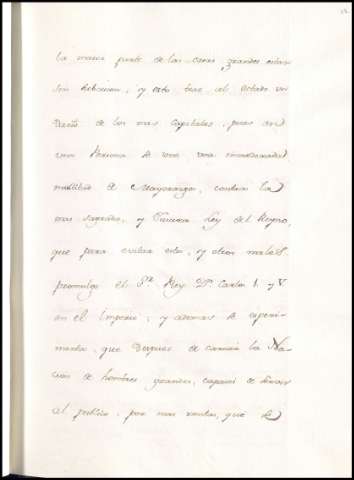 la maior parte de las casas grandes estan
sin subcesion, y esto trae al estado un
de los mas capitales, pues en
una Persona se una inmoderada
multitud de Mayorazgos, contra la
mas sagrada, y Ley del Reyno,
que para evitar este, y otros males
promulgo el Sr. Rey Dn. Carlos I. y V
en el Imperio; y ademas se esperi-
menta, que despues de carecer la Na-
cion de hombres grandes, capaces de servir
al publico, por mas rentas, que se